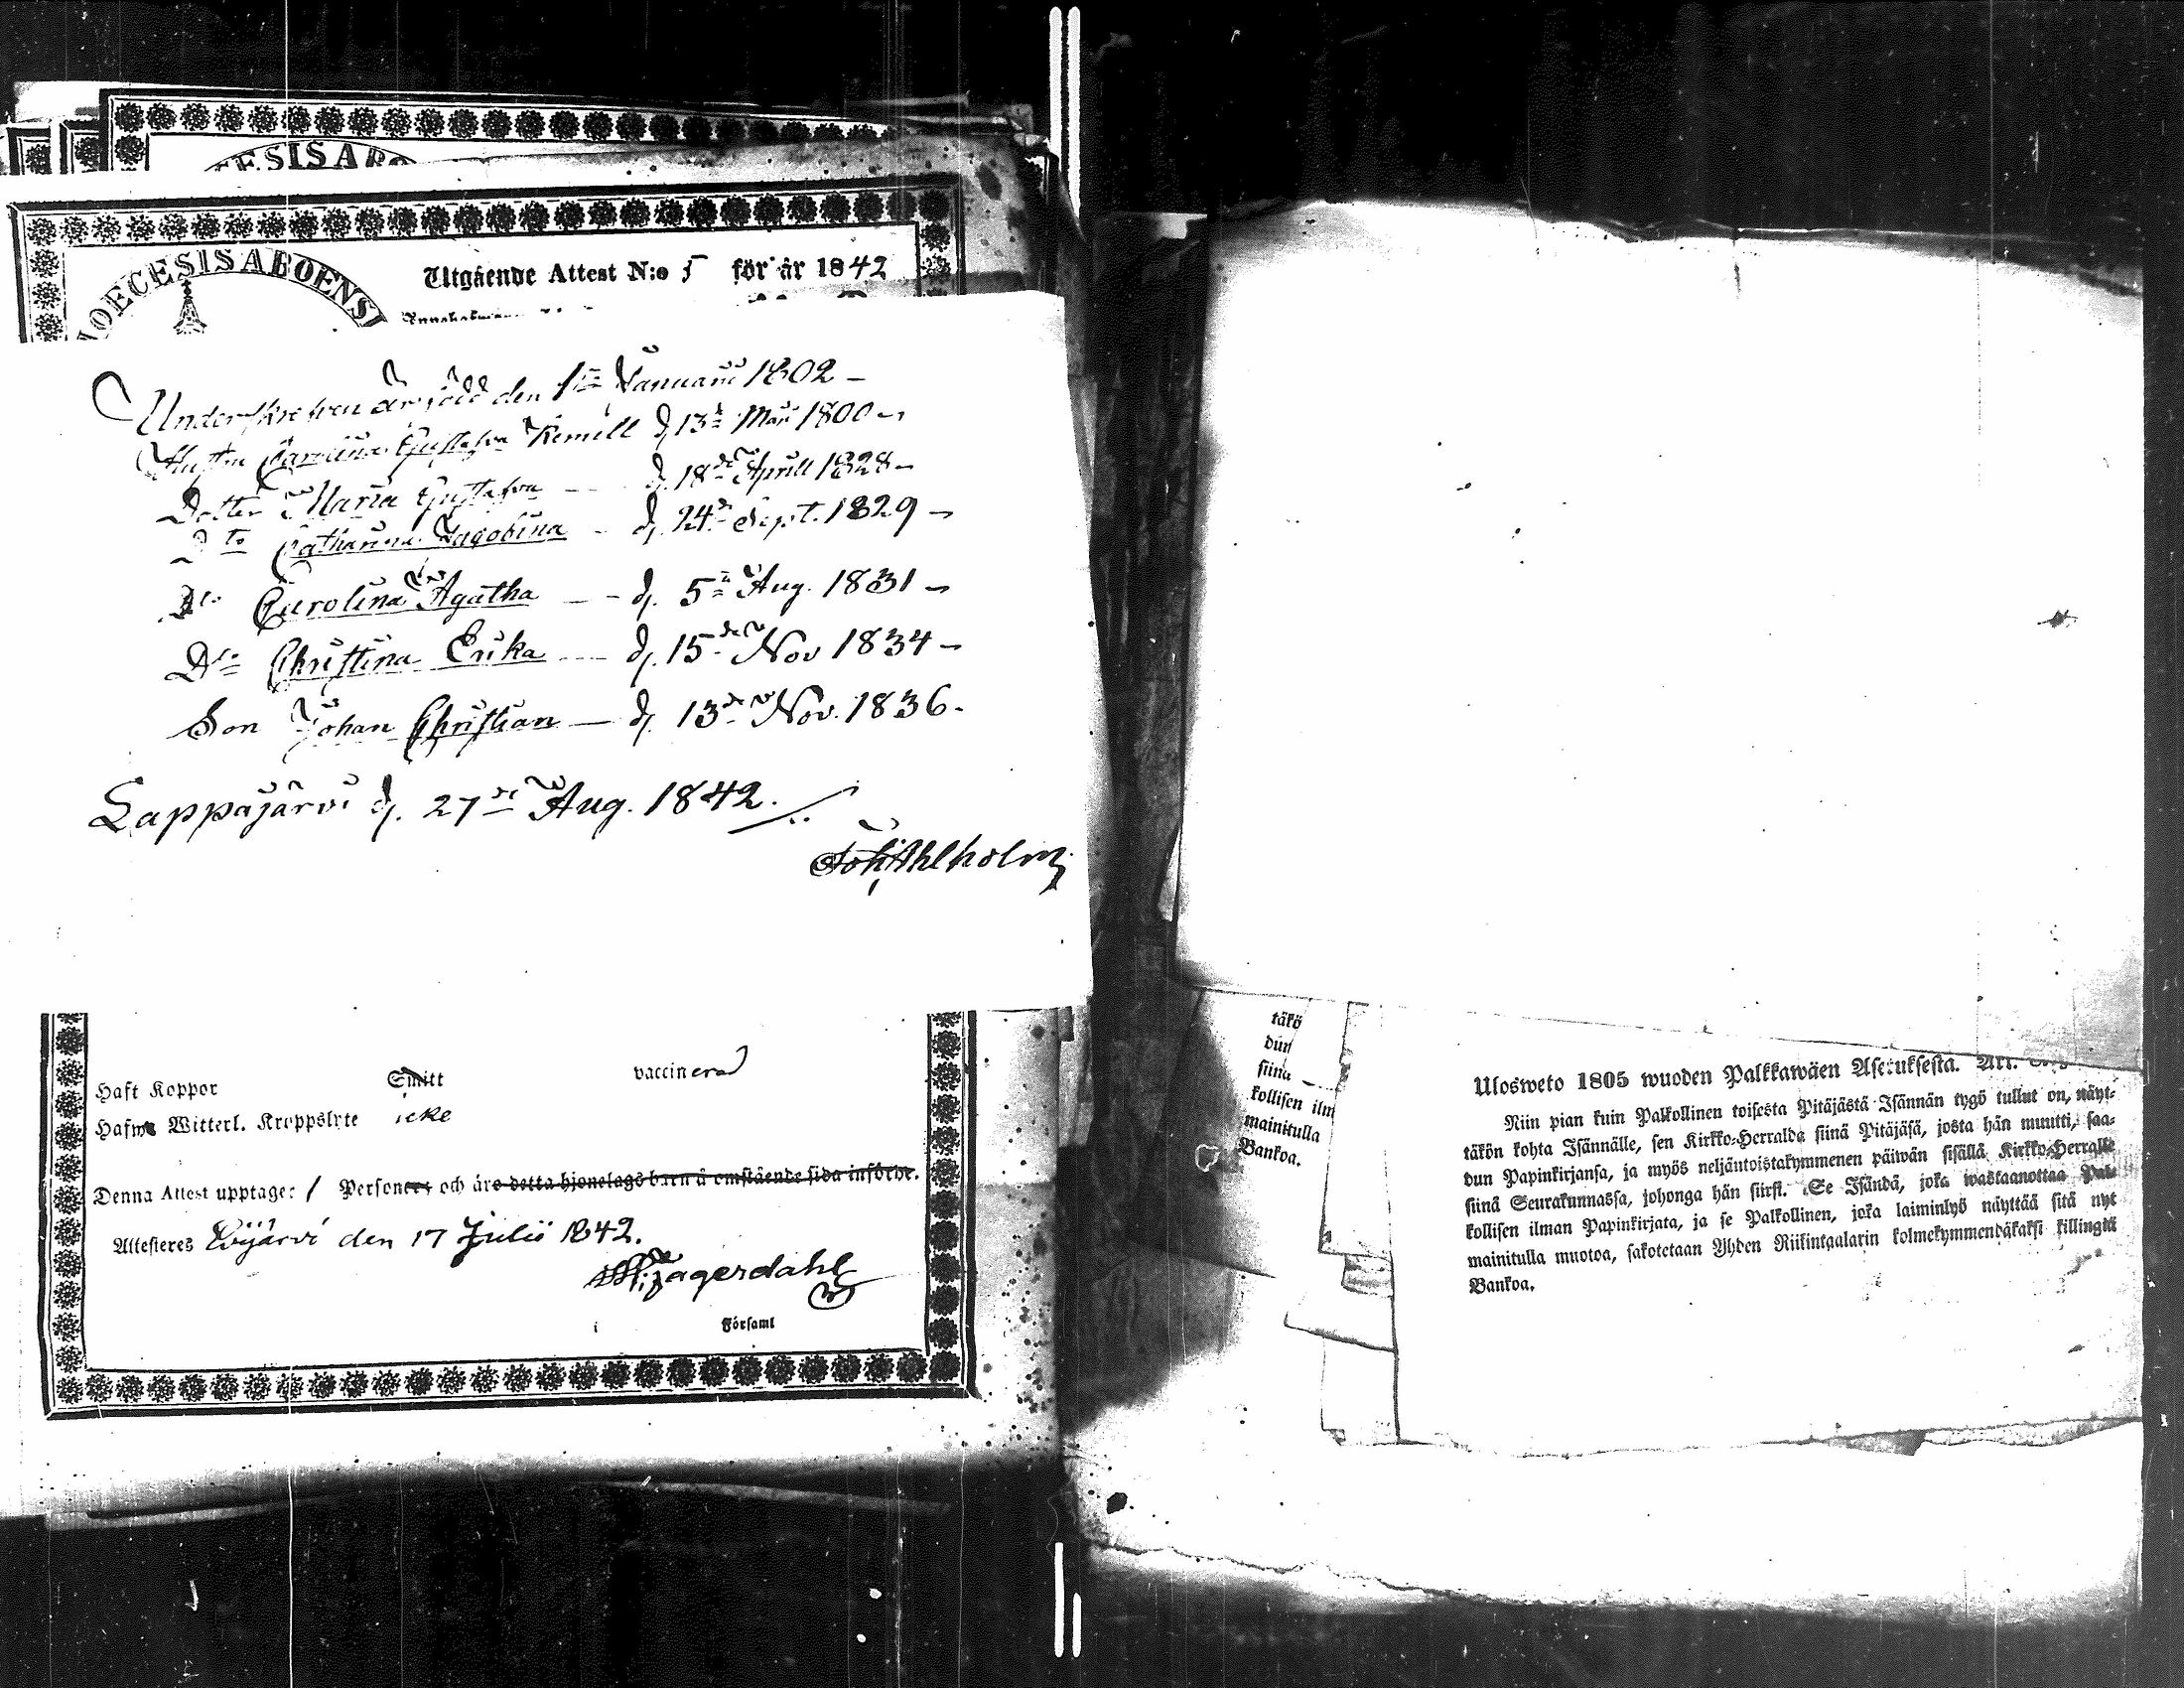 DIOECESIS ABOENSI
Utgående Attest N:o 5 för år 1842
Underskrefven är född den 1ste Januarii 1802 –
Hustru Carolina Gustafva Kemell d. 13de Mars 1800 –
Dotter Maria Gustafva – – d. 18de Aprill 1828 –
Dto Catharina Jacobina – d. 24de Sept. 1829 –
Dto Carolina Agatha – – d. 5te Aug. 1831 –
Dto Christina Erika – – d. 15de Nov 1834 –
Son Johan Christian – d. 13de Nov. 1836.
Lappajärvi d. 27de Aug. 1842.
Joh Ahlholm
Haft Koppor Smitt vaccinerad
Hafwe Witterl. Kroppslyte icke
Denna Attest upptager 1 Personer och äro detta hjonelags barn å omstående sida införde.
Attesteres Evijärvi den 17 Julii 1842.
Jagerdahl
Församl
täkö
dun
siinä
kollisen ilm
mainitulla
Bankoa.
Ulosweto 1805 wuoden Palkkawäen Asetuksesta. Art.
Niin pian kuin Palkollinen toisesta Pitäjästä Isännän tygö tullut on, näyt-
täkön kohta Isännälle, sen Kirkko-Herralda siinä Pitäjäsä, josta hän muutti, saa-
dun Papinkirjansa, ja myös neljäntoistakymmenen päiwän sisällä Kirkko-Herralle
siinä Seurakunnassa, johonga hän siirsi. Se Isändä, joka wastaanottaa Pal-
kollisen ilman Papinkirjata, ja se Palkollinen, joka laiminlyö näyttää sitä nyt
mainitulla muotoa, sakotetaan Yhden Riikintaalarin kolmekymmendäkaksi killingiä
Bankoa.